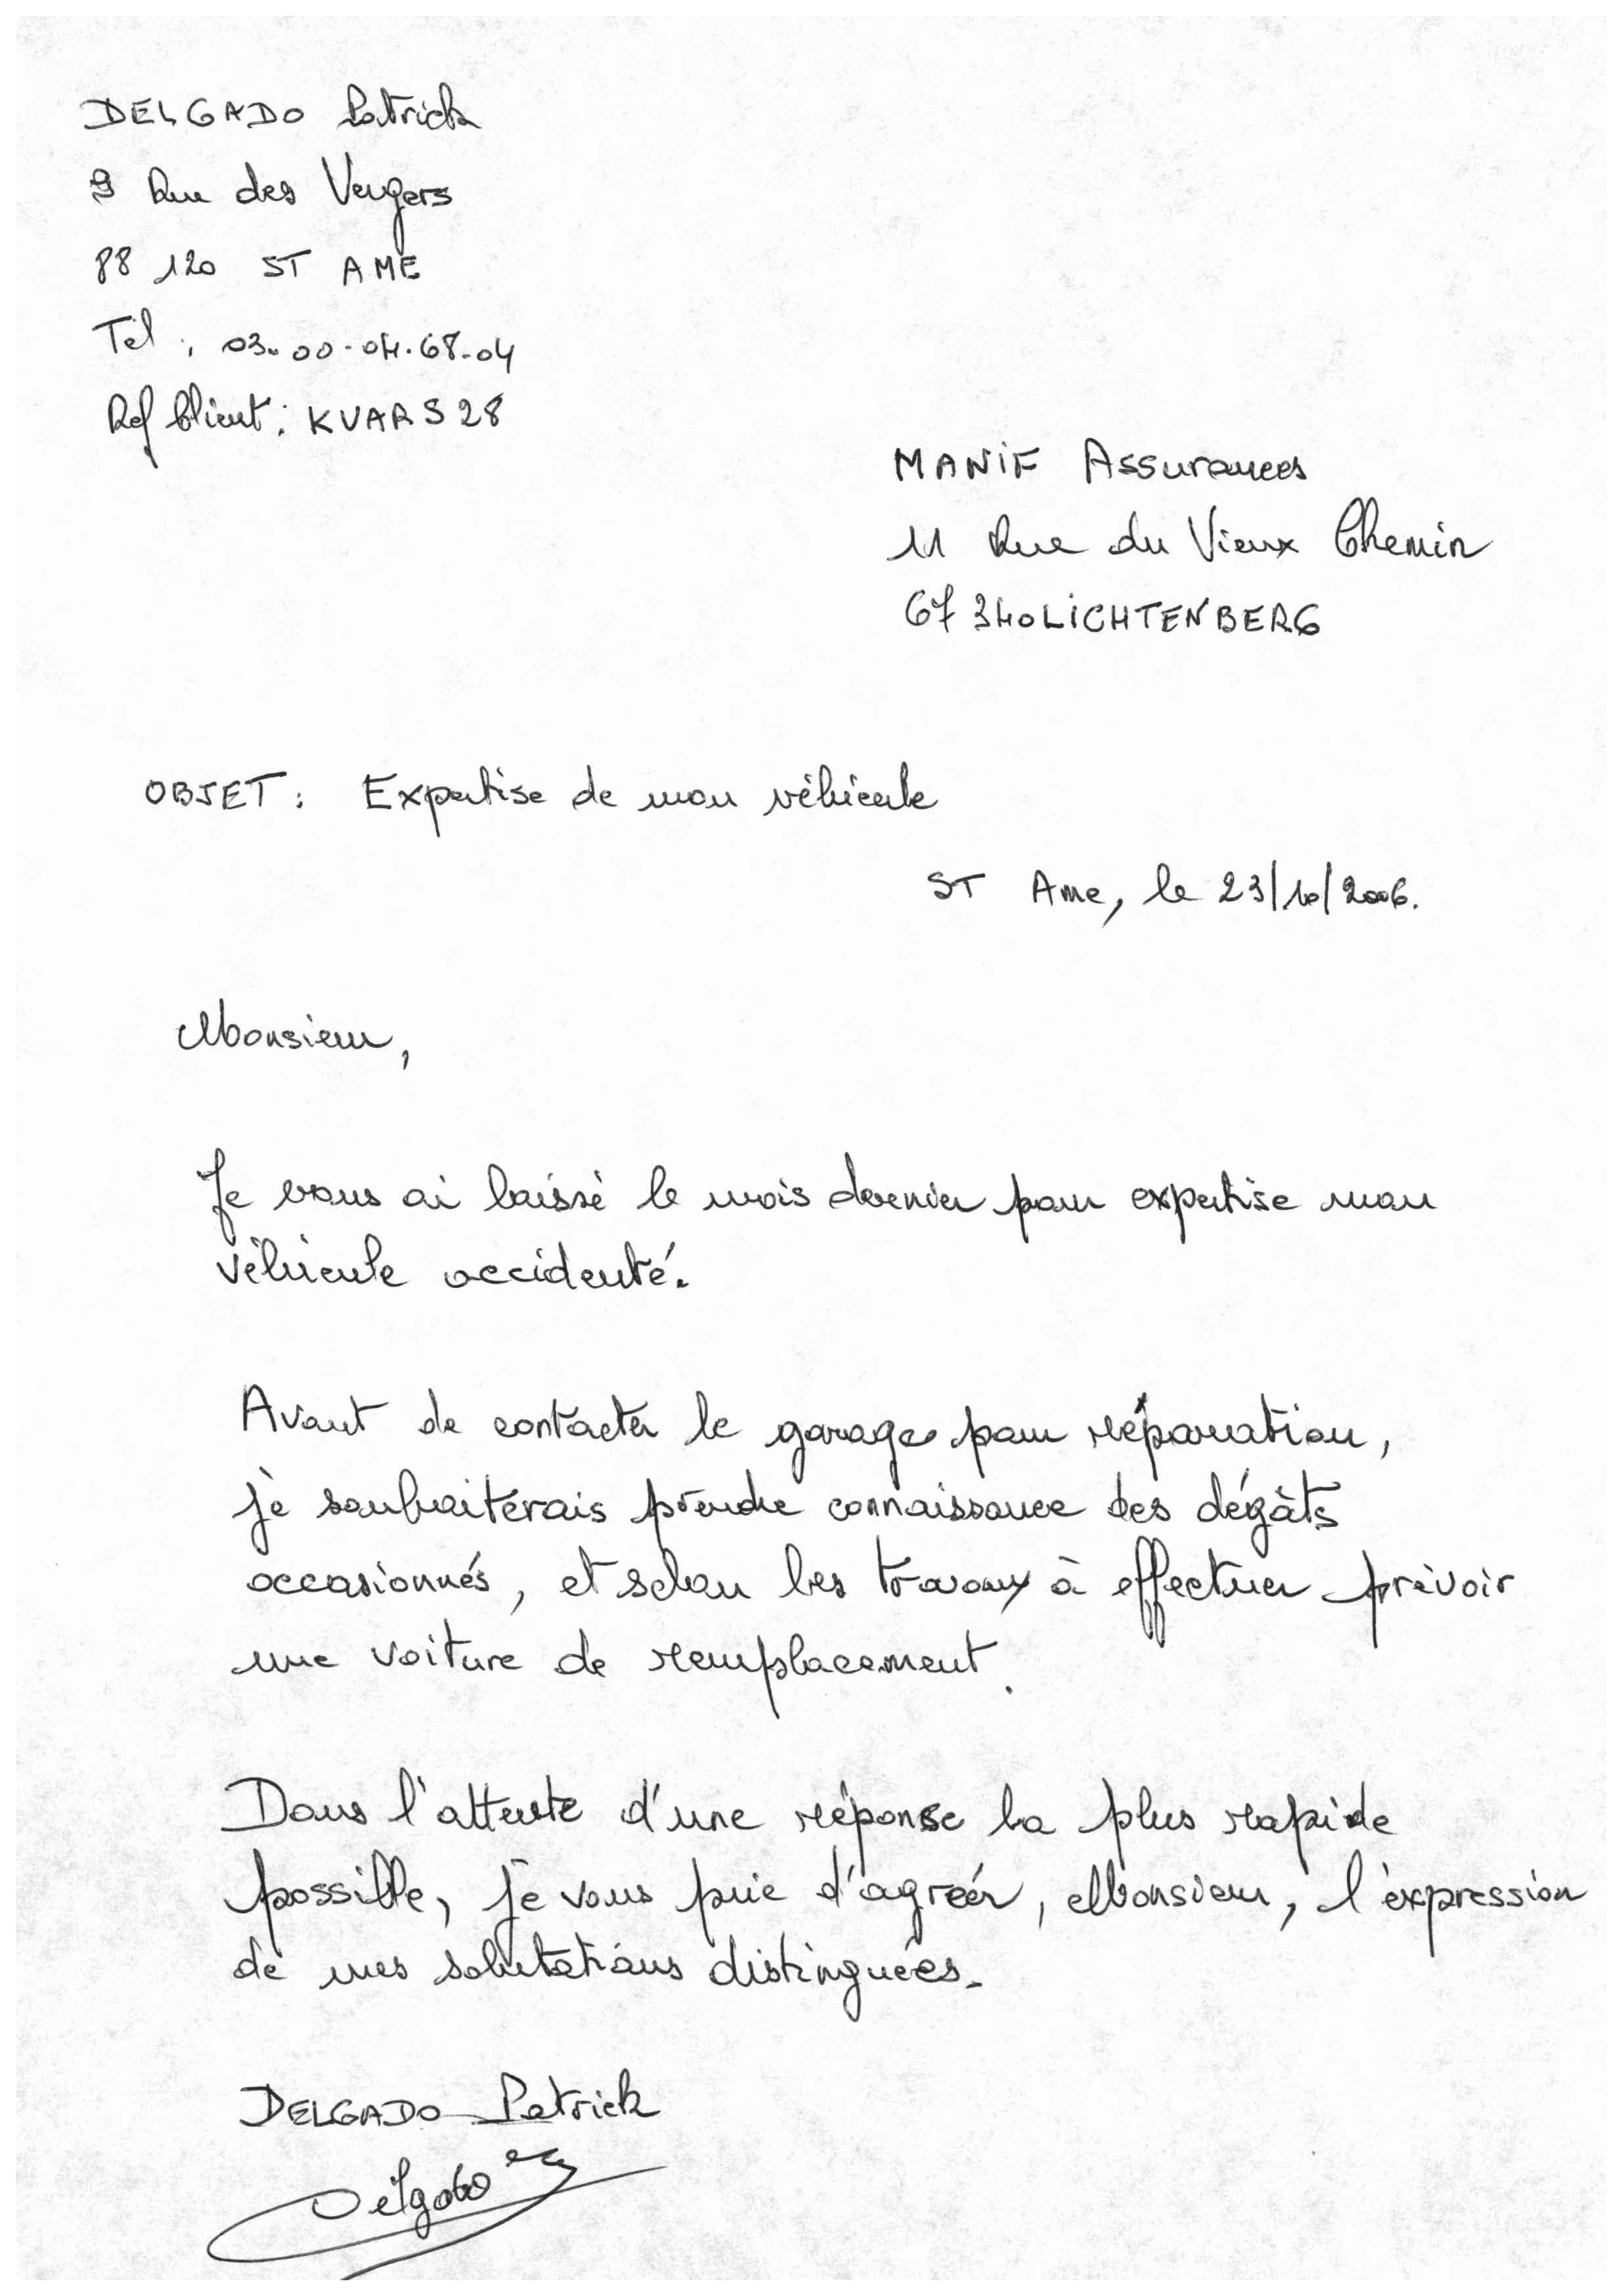 DELGADO Patrick
9 Rue des Vergers
88 120 ST AME
Tél : 03.00.04.68.04
Ref Client : KVARS28
MANIF Assurances
11 Rue du Vieux Chemin
67 340 LICHTENBERG
OBJET : Expertise de mon véhicule
ST Ame, le 23/10/2006.
Monsieur,
Je vous ai laissé le mois dernier pour expertise mon
véhicule accidenté.
Avant de contacter le garage pour réparation,
je souhaiterais prendre connaissance des dégâts
occasionnés, et selon les travaux à effectuer prévoir
une voiture de remplacement.
Dans l'attente d'une réponse la plus rapide
possible, je vous prie d'agréer, Monsieur, l'expression
de mes salutations distinguées.
DELGADO Patrick
Delgado